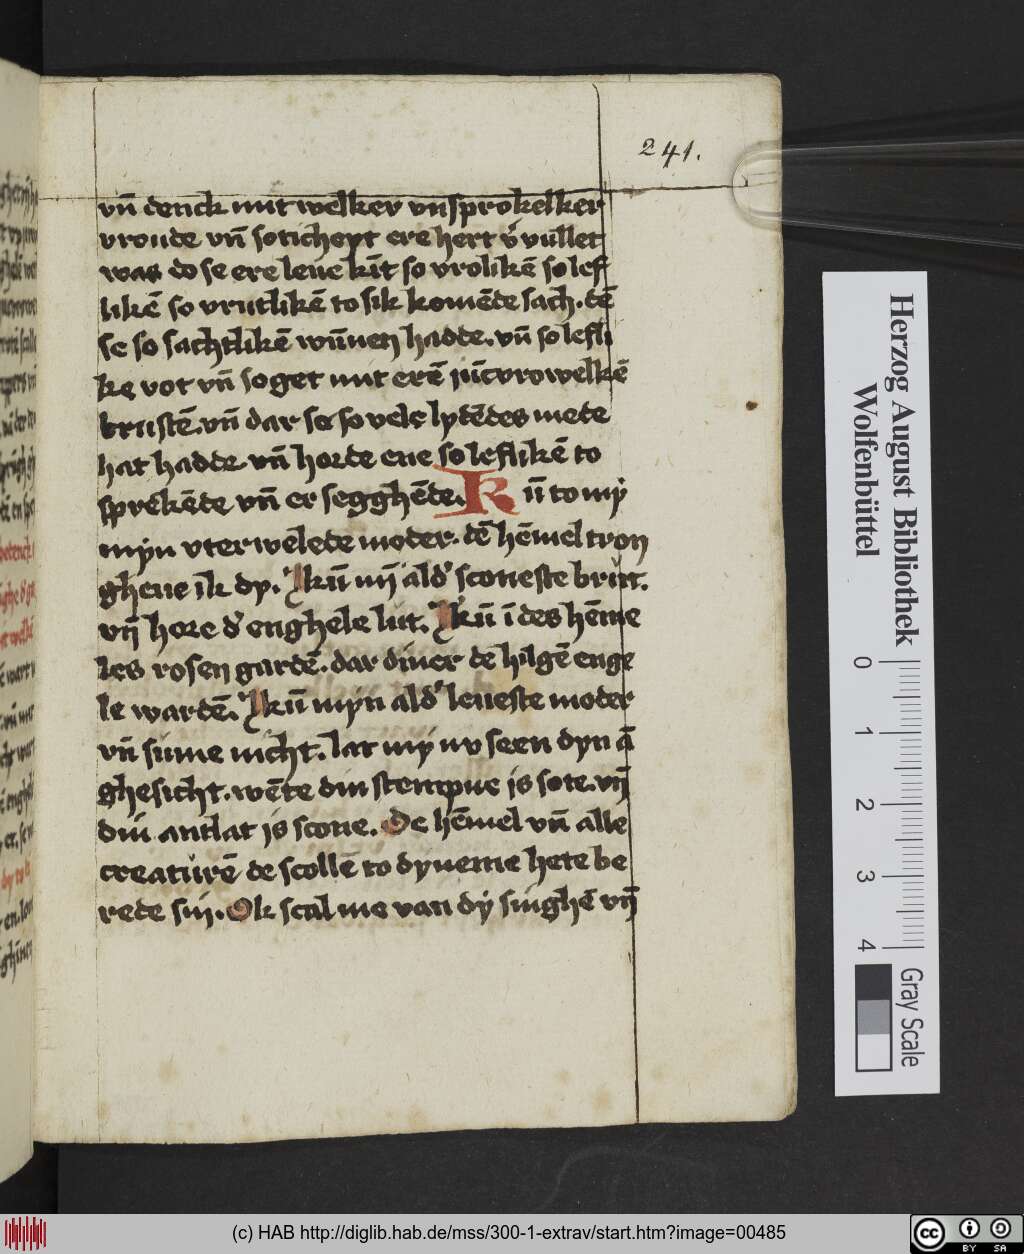 241.
vn̄ denck mit welker vnsprokelker
vroude vn̄ soticheyt ere hert v̓vullet
was do se ere leue kīt so vrolikē so lef
likē so vrutlikē to sik komēde sach. dē
se so sachtlikē wūnen hadde. vn̄ so lefli
ke vot vn̄ soget mit erē jūcvrowelkē
brustē. vn̄ dar se so vele lydēdes mede
hat hadde vn̄ horde ene so leflikē to
sprekēde vn̄ er segghēde. Kū to my
myn vterwelede moder. dē hēmel tron
gheue ik dy. Kū mȳ ald̓ sconeste brut.
vn̄ hore d̓ enghele lut. Kū ī des hēme
les rosen gardē. dar diner de hilgē enge
le wardē. Kū myn ald̓ leueste moder
vn̄ sume nicht. lat my nv seen dyn ā
ghesicht. wēte din stempne is sote. vn̄
din antlat is scone. De hēmel vn̄ alle
creaturē de scollē to dyneme hete be
rede sin. Ok scal me van dy singhē vn̄
Herzog August Bibliothek
Wolfenbüttel
0 1 2 3 4
Gray Scale
(c) HAB http://diglib.hab.de/mss/300-1-extrav/start.htm?image=00485
cc BY SA